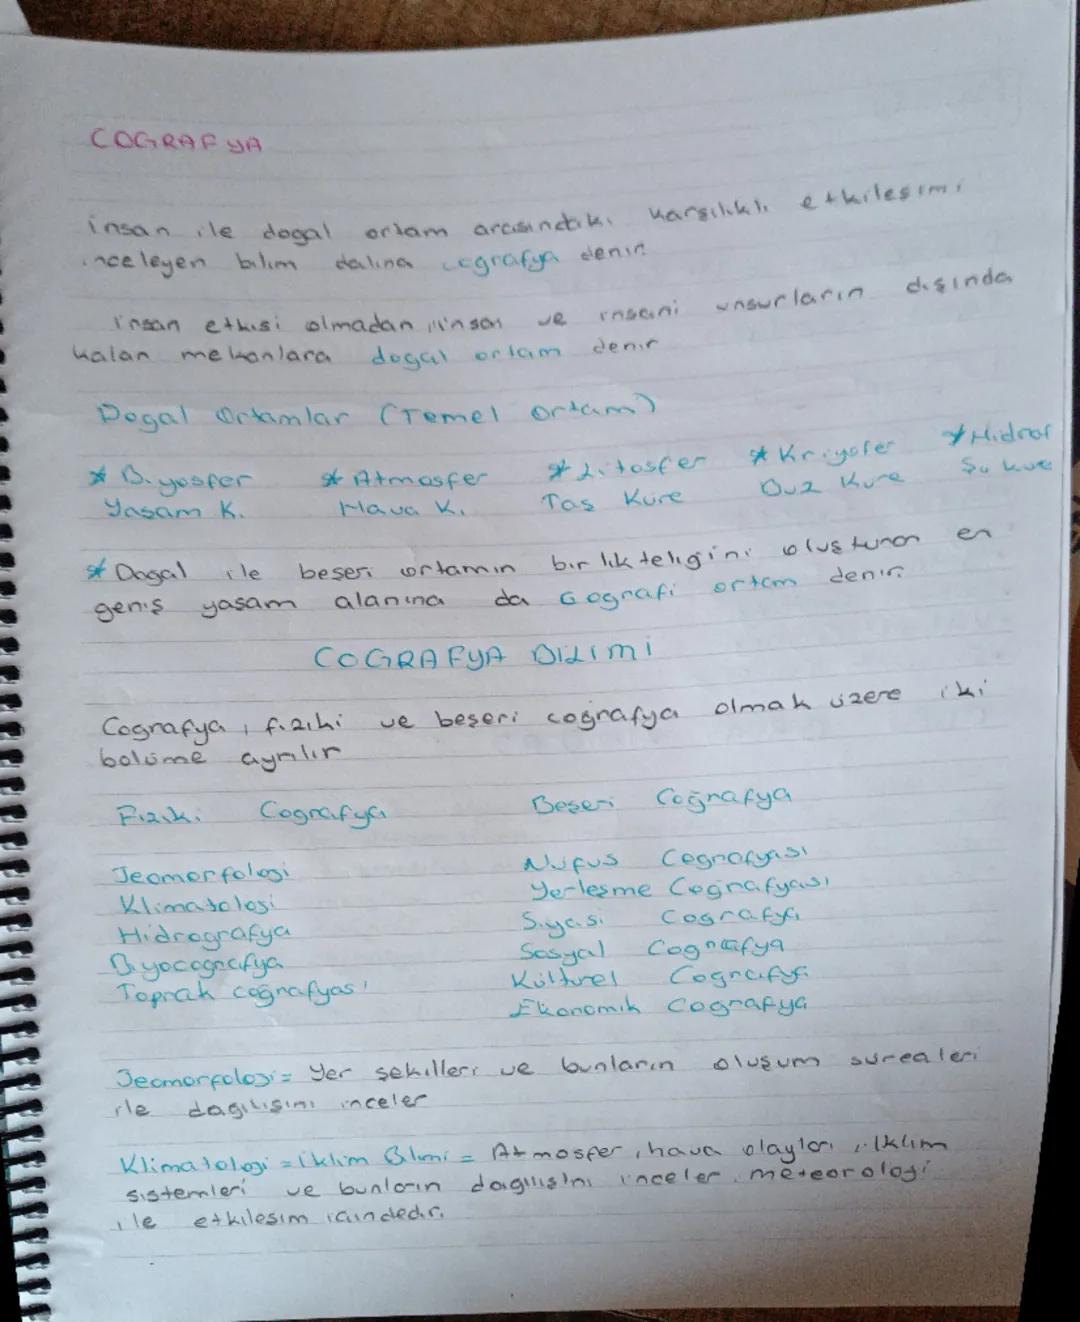 COGRAFYA
insan ile dogal ortam arasındaki karşılıklı etkileşimi
inceleyen bilim dalına cografya denir
insan etkisi olmadan insan ve insani unsurların dışında
kalan mekanlara dogal ortam denir
Dogal Ortamlar (Temel Ortam)
* Biyosfer * Atmosfer * Litosfer * Kriyofer * Hidrof
Yaşam K. Hava K. Taş Küre Buz Küre Su Küre
* Dogal ile beşeri ortamın birlikteligini oluşturan en
geniş yaşam alanına da Cografi ortam denir.
COGRAFYA BİLİMİ
Cografya, fiziki ve beşeri coğrafya olmak üzere iki
bölüme ayrılır
Fiziki Cografya Beşeri Coğrafya
Jeomorfoloji Nüfus Cografyası
Klimatoloji Yerleşme Coğrafyası
Hidrografya Siyasi Cografya
Biyocografya Sosyal Cografya
Toprak coğrafyası Kültürel Cografya
Ekonomik Cografya
Jeomorfoloji = Yer şekilleri ve bunların oluşum surealeri
ile dagılışını inceler
Klimatoloji = İklim Bilimi = Atmosfer, hava olayları, İklim
sistemleri ve bunların dagılışını inceler. meteoroloji
ile etkileşim icindedir.